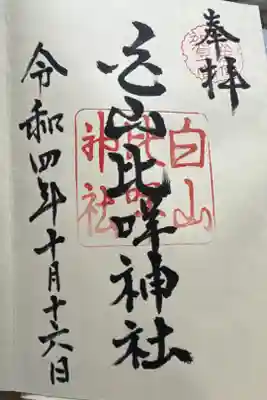 奉拝
白山比咩神社
令和四年十月十六日
白山
神社